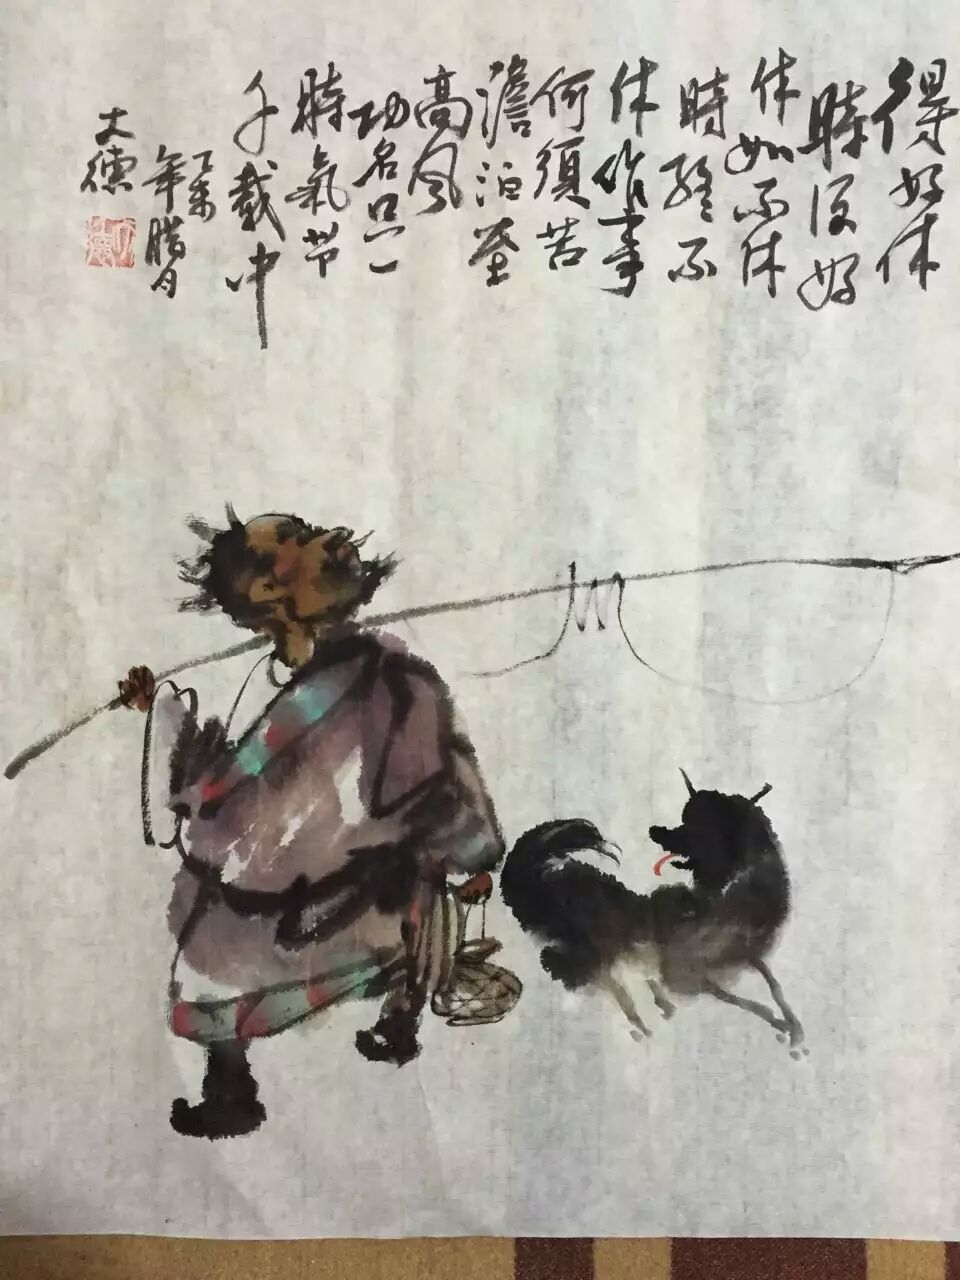 得好休
時便好
休如不休
時終不
休作事
何須苦
澹泊
高风
功名只一
時氣节
千載中
丁未
年腊月
大德